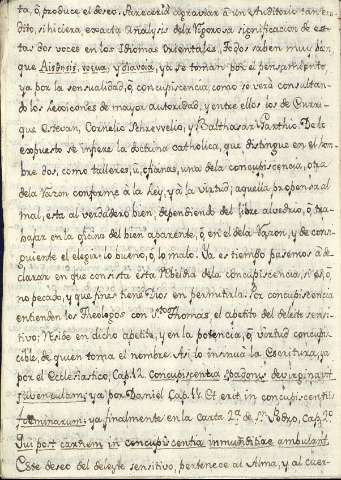 ta, ò, produce el deseo. Pareceria agraviar à un Auditorio tan eru-
dito, si hiciera exacta Analysis dela rigorosa significacion de es-
tas dos voces en los Idiomas Orientales, todos saben muy bien
que y ya se toman por el pensamiento,
ya por la sensualidad, ò, concupiscencia, como se verà consultan-
do los Lexicones de mayor autoridad, y entre ellos los de Enrri-
que Estevan, Cornelio Schrevvelio, y Balthasar Garthio. De lo
expuesto se infiere la doctrina catholica, que distingue en el hom-
bre dos, como talleres, ù, oficinas, una dela concupiscencia, otra
dela razon conforme à la Ley, y à la virtud; aquella propensa al
mal, esta al verdadero bien; dependiendo del libre alvedrio, ò, tra-
bajar en la oficina del bien aparente, ò, en el dela razon, y de consi-
guiente el elegir lo bueno, ò, lo malo. Ya es tiempo pasemos à de-
clarar en que consista esta rebeldia dela concupiscencia, si es, ò,
no pecado, y que fines tiene Dios en permitirla. Por concupiscencia
entienden los Theologos con Sto. Thomas, el apetito del deleite sensi-
tivo; reside en dicho apetito, y en la potencia, ò, virtud concupis-
cible, de quien toma el nombre. Asi lo insinuà la Escritura, ya
por el Ecclesiastico, Cap. 12. Concupiscentia
 ya por Daniel Cap. 11. Et erit in concupiscentiis
foeminarum; ya finalmente en la Carta 2ª. de Sn. Pedro, Cap. 2º.
Qui post carnem in concupiscentia inmunditiae ambulant.
Este deseo del deleite sensitivo, pertenece al Alma, y al cuer-